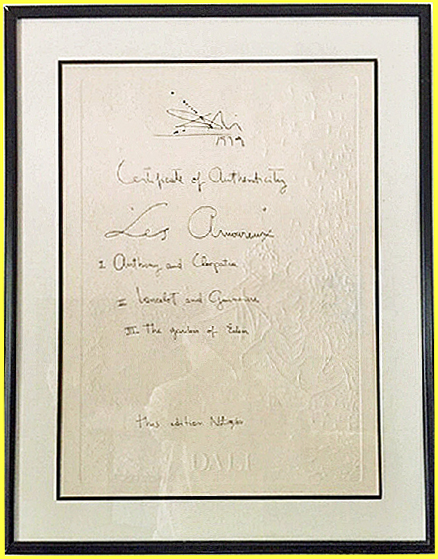 Dalí
1979
Certificate of Authenticity
Les Amoureux
I Anthony and Cleopatra
II Lancelot and Guinevere
III The garden of Eden
this edition
DALI